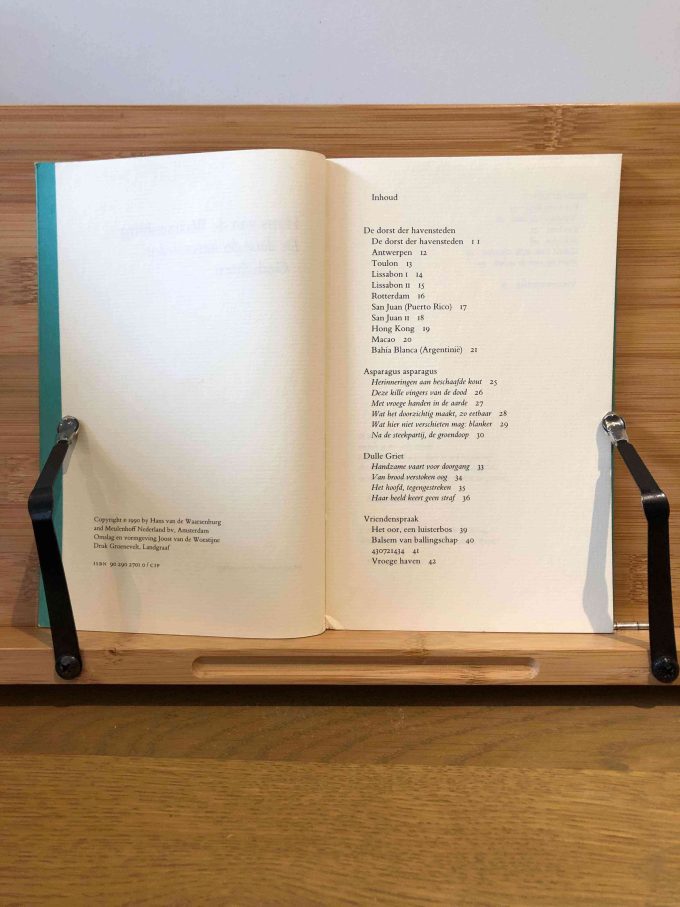 Copyright © 1990 by Hans van de Waarsenburg
and Meulenhoff Nederland bv, Amsterdam
Omslag en vormgeving Joost van de Woestijne
Druk Groenevelt, Landgraaf
ISBN 90 290 2701 0 / CIP
Inhoud
De dorst der havensteden
De dorst der havensteden 11
Antwerpen 12
Toulon 13
Lissabon I 14
Lissabon II 15
Rotterdam 16
San Juan (Puerto Rico) 17
San Juan II 18
Hong Kong 19
Macao 20
Bahía Blanca (Argentinië) 21
Asparagus asparagus
Herinneringen aan beschaafde kout 25
Deze kille vingers van de dood 26
Met vroege handen in de aarde 27
Wat het doorzichtig maakt, zo eetbaar 28
Wat hier niet verschieten mag: blanker 29
Na de steekpartij, de groendoop 30
Dulle Griet
Handzame vaart voor doorgang 33
Van brood verstoken oog 34
Het hoofd, tegengestreken 35
Haar beeld keert geen straf 36
Vriendenspraak
Het oor, een luisterbos 39
Balsem van ballingschap 40
430721434 41
Vroege haven 42